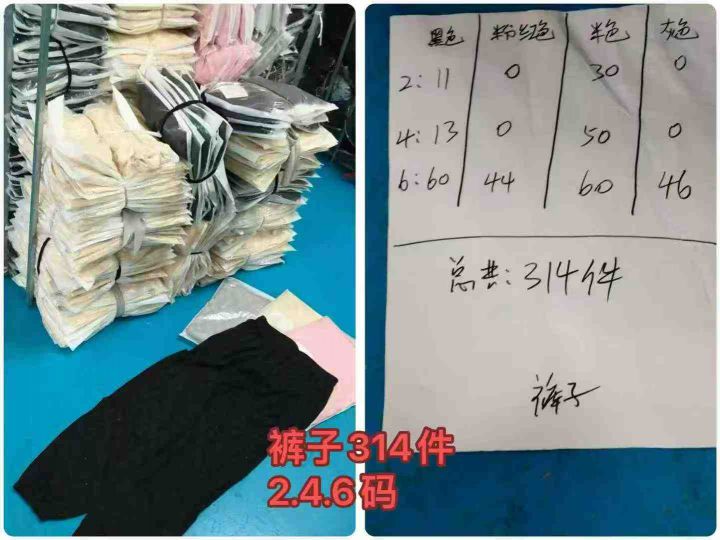 黑色 粉红色 米色 灰色
2: 11 0 30 0
4: 13 0 50 0
6: 60 44 60 46
总共: 314件
裤子
裤子314件
2.4.6码